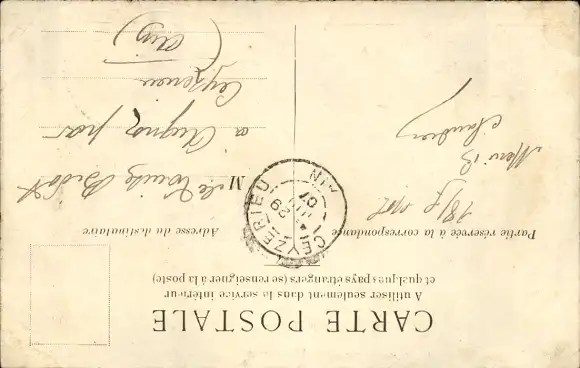 CARTE POSTALE
A utiliser seulement dans le service intérieur
et quelques pays étrangers (se renseigner à la poste)
Partie réservée à la correspondance
Adresse du destinataire
Merci B
CEYZERIEU
AIN
07
Melle Louise
a Avignoz par
Ceyzerieu
(Ain)